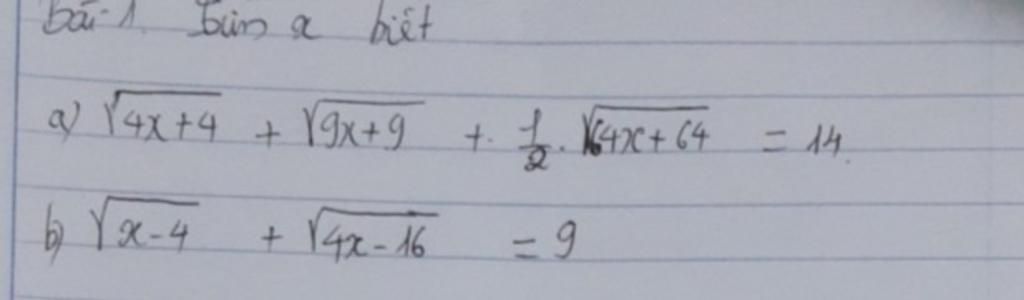 Bài 1. Tìm x biết
a) √4x+4 + √9x+9 + 1/2 . √64x+64 = 14.
b) √x-4 + √4x-16 = 9